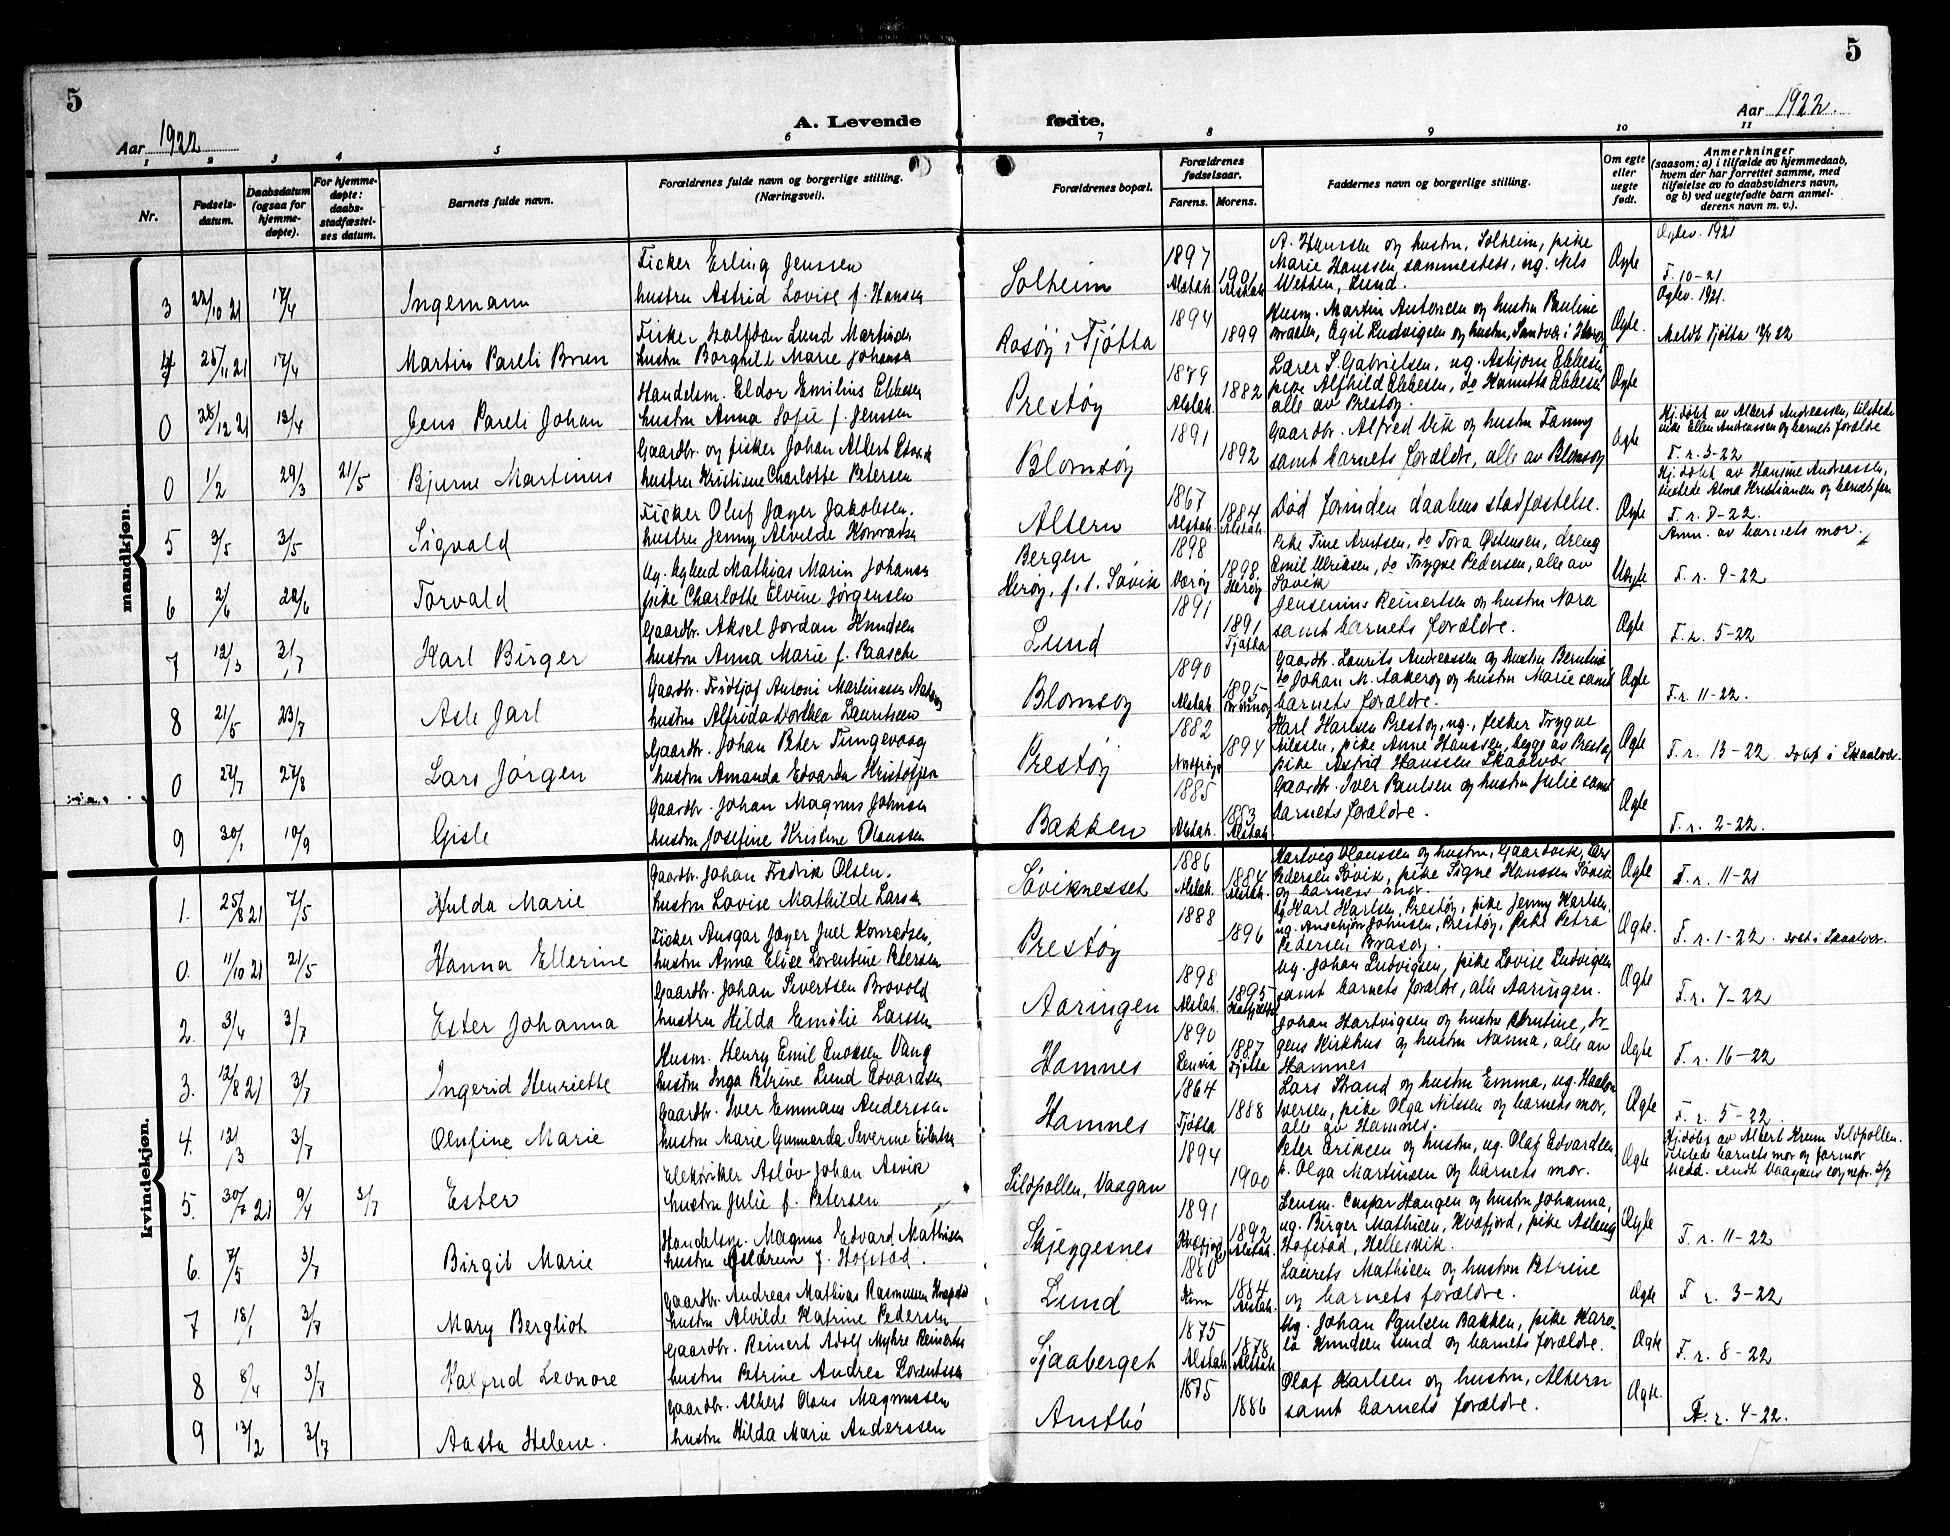 5
5
Aar 1922
A. Levende
fødte.
Aar 1922.
1 2 3 4 5 6 7 8 9 10 11
Nr.
Fødsels-
datum.
Daabsdatum
(ogsaa for
hjemme-
døpte).
For hjemme-
døpte:
daabs-
stadfæstel-
ses datum.
Barnets fulde navn.
Forældrenes fulde navn og borgerlige stilling.
(Næringsvei).
Forældrenes bopæl.
Forældrenes
fødselsaar.
Farens. Morens.
Faddernes navn og borgerlige stilling.
Om egte
eller
uegte
født.
Anmerkninger
(saasom: a) i tilfælde av hjemmedaab,
hvem der har forrettet samme, med
tilføielse av to daabsvidners navn,
og b) ved uegtefødte barn anmel-
derens navn m. v.).
mandkjøn.
3 22/10 21 17/4 Ingemann
Ficker Erling Jenssen
hustru Astrid Lovise f. Hansen
Solheim
1897 Alstah. 1901 Alstah.
A. Hanssen og hustru, Solheim, pike
Marie Hanssen, sammesteds, ug. Nils
Wettsen, Lund.
Ægte
Oplev. 1921
F. 10-21
4 25/11 21 17/4 Martin Pareli Brun
Ficker Halfdan Lund Martinsen
hustru Borghill Marie Johansen
Rosøy i Tjøtta
1894 1899
Husm. Martin Antonsen og hustru Pauline
Egil Ludvigsen og hustru, Sandvær i Herøy
Ægte.
Oplev. 1921.
Meldt Tjøtta 12/6 22
0 28/12 21 13/4 Jens Pareli Johan
Handelsm. Eldor Emilius Ebbesen
hustru Anna Sofie f. Jenssen
Prestøy
1879 Alstah. 1882
Lærer S. Gabrielsen, ug. Asbjørn Ebbesen
pike Alfhild Ebbesen, do Hanette Ebbesen
alle av Prestøy.
Ægte
0 1/2 29/3 21/5 Bjarne Martinus
Gaardbr. og fisker Johan Albert
hustru Kristiane Charlotte Petersen
Blomsøy
1891 1892
Gaardbr. Alfred Vik og hustru Fanny
samt barnets forældre, alle av Blomsøy
Ægte
Hj.døbt av Albert Andreassen, tilstede
Ellen Andreassen og barnets forældre
F. r. 3-22
5 9/5 3/5 Sigvald
Ficker Oluf Jæger Jakobsen.
hustru Jenny Alvilde Konradsen
Altern
1867 Alstah. 1884 Alstah.
Død forinden daabens stadfæstelse.
Ægte
Hj.døbt av Hansine Andreassen,
tilstede Alma Kristiansen og barnets far.
F. r. 8-22.
6 2/6 22/6 Torvald
Ug. Mathias Marin Johansen
pike Charlotte Elvine Jørgensen
Bergen
Herøy, f. t. Søvik
1898 Værøy 1898 Herøy
Pike Tine Arntsen, do Tora Østensen, dreng
Emil Ulriksen, do Trygve Pedersen, alle av
Søvik
Uegte
Anm. av barnets mor.
F. r. 9-22
7 12/3 3/7 Karl Birger
Gaardbr. Aksel Jordan Knudsen
hustru Anna Marie f. Paasche
Lund
1891 1891 Tjøtta
Jensenius Reinertsen og hustru Nora
samt barnets forældre.
Ægte
F. r. 5-22
8 21/5 23/7 Asle Jarl
Gaardbr. Fridtjof Antoni Martinussen
hustru Alfrida Dorthea Lauritsen
Blomsøy
1890 Alstah. 1895 Brønnøy
Gaardbr. Laurits Andreassen og hustru Berntine
do Johan M. Aakerøy og hustru Marie samt
barnets forældre.
Ægte
F. r. 11-22.
0 27/7 27/8 Lars Jørgen
Gaardbr. Johan Peter Tungevaag
hustru Amanda Edvarda Kristoffersen
Prestøy
1882 1894
Karl Karlsen Prestøy, ug., fisker Trygve
Nilssen, pike Anne Hanssen, begge av Prestøy
pike Astrid Hanssen Skaalvær
Ægte
F. r. 13-22. døbt i Skaalvær.
9 30/1 10/9 Gisle
Gaardbr. Johan Magnus Johnsen
hustru Josefine Kristine Olaussen
Bakken
1885 Alstah. 1883 Alstah.
Gaardbr. Iver Paulsen og hustru Julie samt
barnets forældre.
Ægte
F. r. 2-22.
kvindekjøn.
1. 25/8 21 7/5 Hulda Marie
Gaardbr. Johan Fredrik Olsen.
hustru Lovise Mathilde Larsen
Søviknesset
1886 Alstah. 1884 Alstah.
Hartvig Olaussen og hustru, Gaardvik, Lars
Pedersen Søvik, pike Signe Hanssen Søvik
og barnets mor.
Ægte
F. r. 11-21
0. 11/10 21 21/5 Hanna Ellerine
Ficker Ansgar Jæger Juel Konradsen,
hustru Anna Elise Lorentine Petersen
Prestøy
1888 1896
Karl Karlsen, Prestøy, pike Jenny Karlsen,
ug. Anskjær Johnsen, Prestøy, pike Petra
Pedersen Brasøy.
Ægte.
F. r. 1-22. døbt i Skaalvær.
2. 3/4 3/7 Ester Johanna
Gaardbr. Johan Sivertsen Brovold
hustru Hilda Emilie Larssen
Aaringen
1898 Alstah. 1895 Hatfjelddal
Ug. Johan Ludvigsen, pike Lovise Ludvigsen
samt barnets forældre, alle Aaringen.
Ægte
F. r. 7-22
3. 12/8 21 3/7 Ingerid Henriette
Husm. Henry Emil Enoksen Vang
hustru Inga Petrine Lund Edvardsen
Hamnes
1890 Lenvik 1887 Tjøtta
Johan Hartvigsen og hustru Kristine, Jr-
gens Kirkhus og hustru Nanna, alle av
Hamnes
Ægte
F. r. 16-22
4. 12/3 3/7 Olufine Marie
Gaardbr. Iver Emmans Anderssen
hustru Marie Gunnarda Severine Eilertsen
Hamnes
1864 Tjøtta 1888
Lars Strand og hustru Emma, ug. Haakon
Iversen, pike Olga Nilssen og barnets mor,
alle av Hamnes.
Ægte
F. r. 5-22.
5. 30/7 21 9/4 3/7 Ester
Elektriker Asløv Johan Asvik
hustru Julie f. Petersen
Sildpollen, Vaagan
1894 1900
Peter Eriksen og hustru, ug. Olaf Edvardsen
p. Olga Martinsen og barnets mor.
Ægte
Hj.døbt av Albert Kreun Sildpollen.
tilstede barnets mor og farmor
Medd. sendt Vaagans sognepr. 3/7
6. 7/5 3/7 Birgit Marie
Handelsm. Magnus Edvard Mathisen
hustru Gudrun f. Hofstad.
Skjeggesnes
1891 Kvæfjord 1892 Alstah.
Lensm. Caspar Haugen og hustru Johanna,
ug. Birger Mathisen, Kvæfjord, pike Aslaug
Hofstad, Hellesvik.
Ægte
F. r. 11-22
7 18/1 3/7 Mary Bergliot
Gaardbr. Andreas Mathias Rasmussen
hustru Alvilde Katrine Pedersen
Lund
1880 Kinn 1884 Alstah.
Laurits Mathisen og hustru Petrine
og barnets forældre.
Ægte
F. r. 3-22
8 8/4 3/7 Halfrid Leonore
Gaardbr. Reinert Adolf Myhre Reinertsen
hustru Petrine Andrea Lorentsen
Sjaaberget
1875 Alstah. 1878 Alstah.
Ug. Johan Paulsen Bakken, pike Karo-
la Knudsen Lund og barnets forældre.
Ægte
F. r. 8-22
9 13/2 3/7 Aasta Helene.
Gaardbr. Albert Olaus Magnussen
hustru Hilda Marie Anderssen
Austbø
1875 1886
Olaf Karlsen og hustru, Altern
samt barnets forældre.
Ægte.
F. r. 4-22.